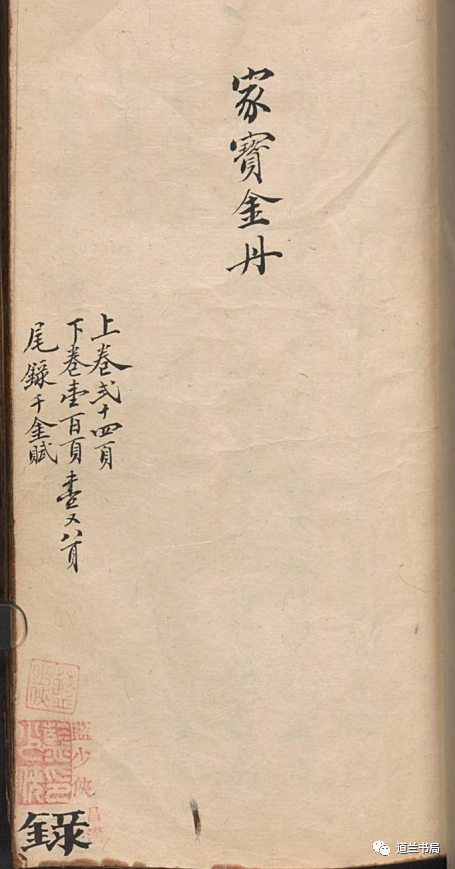 家寶金丹
上卷弍十四頁
下卷壹百頁壹又八頁
尾錄千金賦
藍少俠
錄
道兰书局